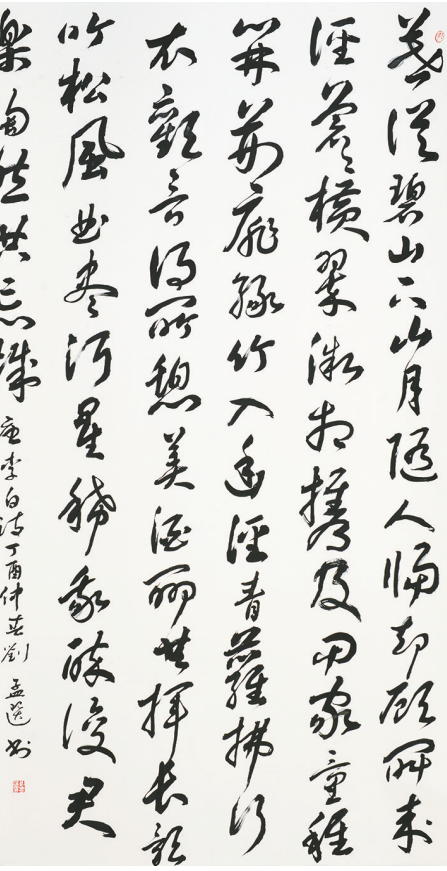 暮從碧山下山月隨人歸却顧所来
徑蒼々橫翠微相攜及田家童稚
開荆扉綠竹入幽徑青蘿拂行
衣歡言得所憩美酒聊共揮長歌
吟松風曲盡河星稀我醉復君
樂陶然共忘機 唐李白詩丁酉仲春劉孟